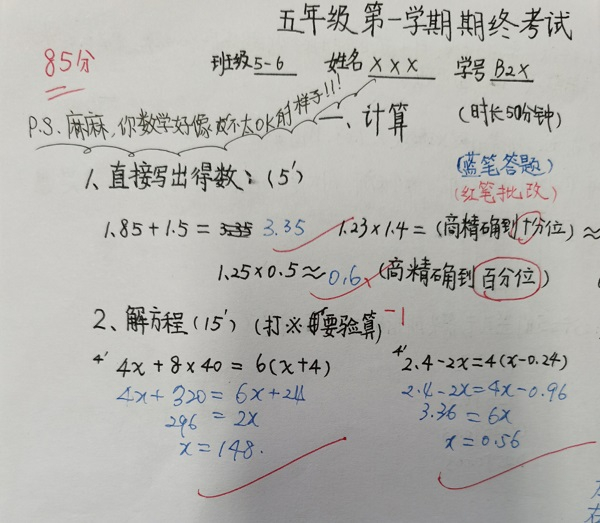 五年级第一学期期终考试
85分
班级 5-6 姓名 XXX 学号 B2X
P.S. 麻麻,你数学好像不太OK的样子!!!
一、计算 (时长50分钟)
(蓝笔答题)
(红笔批改)
1、直接写出得数:(5')
1.85+1.5= 3.35 1.23×1.4=(商精确到十分位)≈
1.25×0.5≈0.6 (商精确到百分位)
2、解方程(15')(打※要验算) -1
4' 4x+8×40=6(x+4) 4' 2.4-2x=4(x-0.24)
4x+320=6x+24 2.4-2x=4x-0.96
296=2x 3.36=6x
x=148. x=0.56